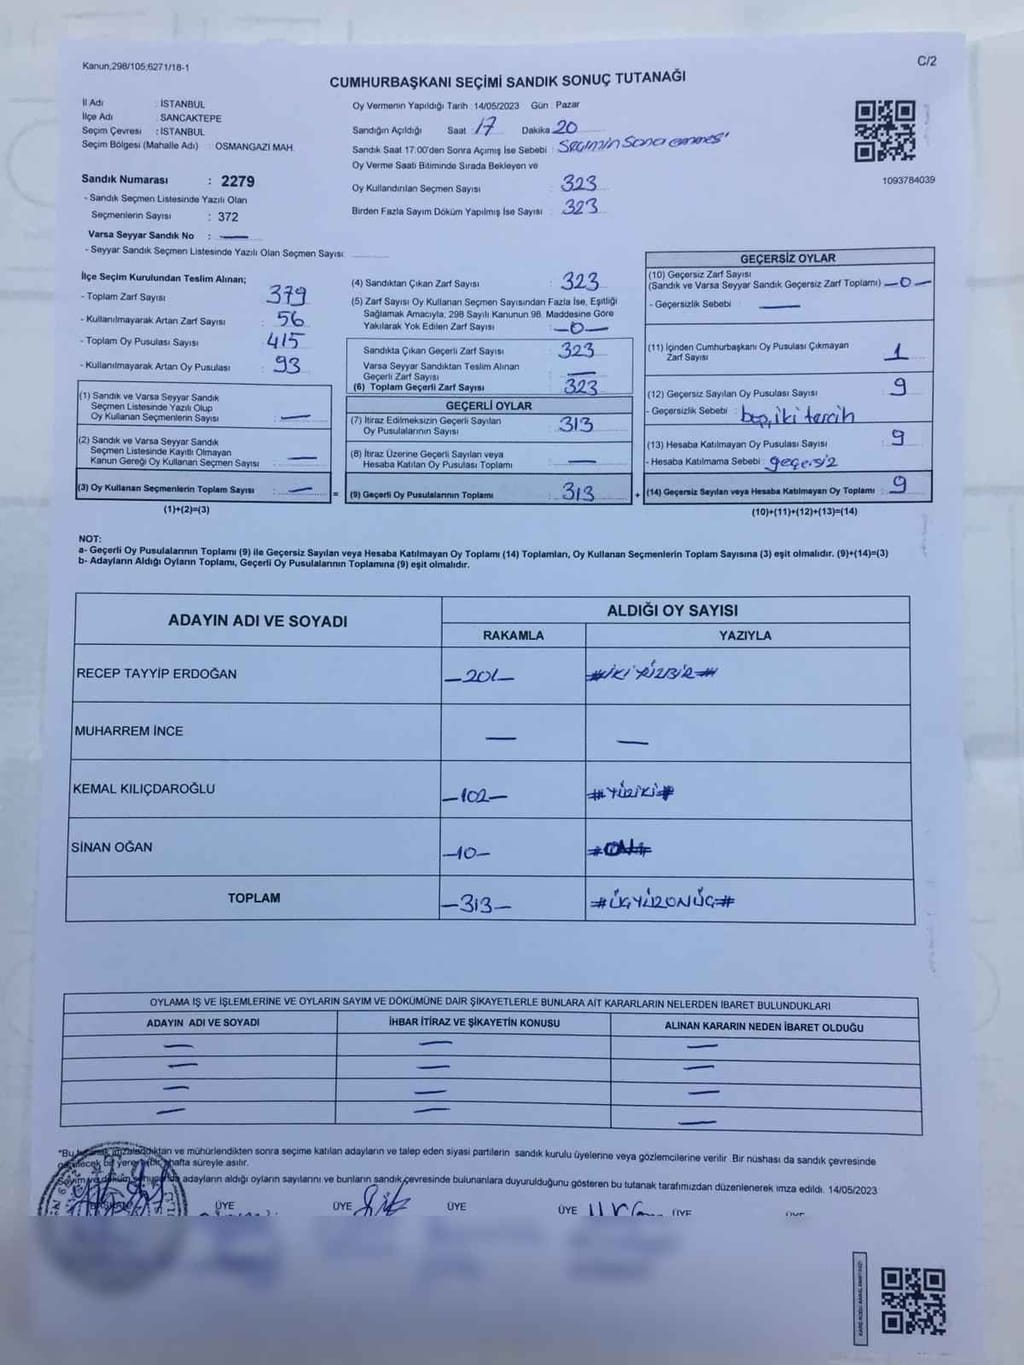 Kanun;298/105;6271/18-1
C/2
CUMHURBAŞKANI SEÇİMİ SANDIK SONUÇ TUTANAĞI
İl Adı : İSTANBUL
İlçe Adı : SANCAKTEPE
Seçim Çevresi : İSTANBUL
Seçim Bölgesi (Mahalle Adı) : OSMANGAZİ MAH.
Sandık Numarası : 2279
- Sandık Seçmen Listesinde Yazılı Olan
Seçmenlerin Sayısı : 372
Varsa Seyyar Sandık No : —
- Seyyar Sandık Seçmen Listesinde Yazılı Olan Seçmen Sayısı:
Oy Vermenin Yapıldığı Tarih : 14/05/2023 Gün : Pazar
Sandığın Açıldığı Saat : 17 Dakika 20
Sandık Saat 17:00'den Sonra Açımış İse Sebebi : Seçimin Sona ermesi
Oy Verme Saati Bitiminde Sırada Bekleyen ve
Oy Kullandırılan Seçmen Sayısı : 323
Birden Fazla Sayım Döküm Yapılmış İse Sayısı : 323
1093784039
İlçe Seçim Kurulundan Teslim Alınan;
- Toplam Zarf Sayısı : 379
- Kullanılmayarak Artan Zarf Sayısı : 56
- Toplam Oy Pusulası Sayısı : 415
- Kullanılmayarak Artan Oy Pusulası : 93
(1) Sandık ve Varsa Seyyar Sandık
Seçmen Listesinde Yazılı Olup
Oy Kullanan Seçmenlerin Sayısı : —
(2) Sandık ve Varsa Seyyar Sandık
Seçmen Listesinde Kayıtlı Olmayan
Kanun Gereği Oy Kullanan Seçmen Sayısı : —
(3) Oy Kullanan Seçmenlerin Toplam Sayısı : —
(1)+(2)=(3)
=
(4) Sandıktan Çıkan Zarf Sayısı : 323
(5) Zarf Sayısı Oy Kullanan Seçmen Sayısından Fazla İse, Eşitliği
Sağlamak Amacıyla; 298 Sayılı Kanunun 98. Maddesine Göre
Yakılarak Yok Edilen Zarf Sayısı : —0—
Sandıkta Çıkan Geçerli Zarf Sayısı : 323
Varsa Seyyar Sandıktan Teslim Alınan
Geçerli Zarf Sayısı : —
(6) Toplam Geçerli Zarf Sayısı : 323
GEÇERLİ OYLAR
(7) İtiraz Edilmeksizin Geçerli Sayılan
Oy Pusulalarının Sayısı : 313
(8) İtiraz Üzerine Geçerli Sayılan veya
Hesaba Katılan Oy Pusulası Toplamı : —
(9) Geçerli Oy Pusulalarının Toplamı : 313
+
GEÇERSİZ OYLAR
(10) Geçersiz Zarf Sayısı
(Sandık ve Varsa Seyyar Sandık Geçersiz Zarf Toplamı) —0—
- Geçersizlik Sebebi : —
(11) İçinden Cumhurbaşkanı Oy Pusulası Çıkmayan
Zarf Sayısı : 1
(12) Geçersiz Sayılan Oy Pusulası Sayısı : 9
- Geçersizlik Sebebi : boş, iki tercih
(13) Hesaba Katılmayan Oy Pusulası Sayısı : 9
- Hesaba Katılmama Sebebi : geçersiz
(14) Geçersiz Sayılan veya Hesaba Katılmayan Oy Toplamı : 9
(10)+(11)+(12)+(13)=(14)
NOT:
a- Geçerli Oy Pusulalarının Toplamı (9) ile Geçersiz Sayılan veya Hesaba Katılmayan Oy Toplamı (14) Toplamları, Oy Kullanan Seçmenlerin Toplam Sayısına (3) eşit olmalıdır. (9)+(14)=(3)
b- Adayların Aldığı Oyların Toplamı, Geçerli Oy Pusulalarının Toplamına (9) eşit olmalıdır.
ADAYIN ADI VE SOYADI
ALDIĞI OY SAYISI
RAKAMLA YAZIYLA
RECEP TAYYİP ERDOĞAN —201— #İKİYÜZBİR#
MUHARREM İNCE — —
KEMAL KILIÇDAROĞLU —102— #YÜZİKİ#
SİNAN OĞAN —10— #ON#
TOPLAM —313— #ÜÇYÜZONÜÇ#
OYLAMA İŞ VE İŞLEMLERİNE VE OYLARIN SAYIM VE DÖKÜMÜNE DAİR ŞİKAYETLERLE BUNLARA AİT KARARLARIN NELERDEN İBARET BULUNDUKLARI
ADAYIN ADI VE SOYADI İHBAR İTİRAZ VE ŞİKAYETİN KONUSU ALINAN KARARIN NEDEN İBARET OLDUĞU
— — —
— — —
— — —
— — —
"Bu ve mühürlendikten sonra seçime katılan adayların ve talep eden siyasi partilerin sandık kurulu üyelerine veya gözlemcilerine verilir. Bir nüshası da sandık çevresinde
hafta süreyle asılır.
adayların aldığı oyların sayılarını ve bunların sandık çevresinde bulunanlara duyurulduğunu gösteren bu tutanak tarafımızdan düzenlenerek imza edildi. 14/05/2023
ÜYE ÜYE ÜYE ÜYE ÜYE ÜYE